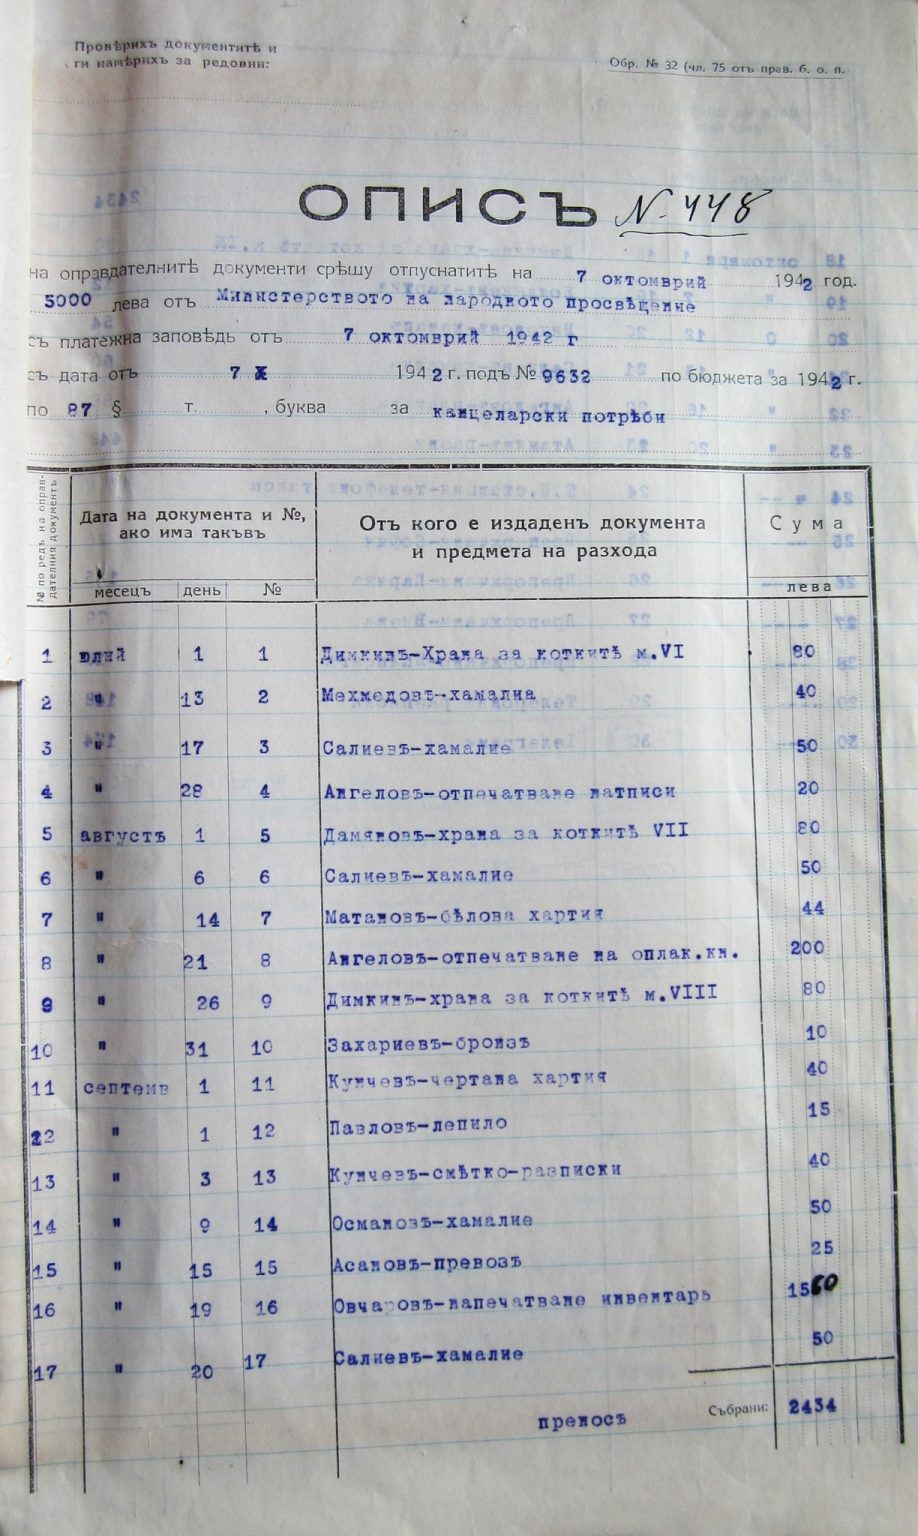 Провѣрихъ документитѣ и
ги намѣрихъ за редовни:
Обр. № 32 (чл. 75 отъ прав. б. о. п.
ОПИСЪ № 448
на оправдателнитѣ документи срѣщу отпуснатитѣ на 7 октомврий 1942 год.
5000 лева отъ Министерството на народното просвѣщение
съ платежна заповѣдь отъ 7 октомврий 1942 г
съ дата отъ 7 X 1942 г. подъ № 9632 по бюджета за 1942 г.
по 87 § т. , буква за канцеларски потрѣби
№ по редъ на оправдателния документъ Дата на документа и №, ако има такъвъ Отъ кого е издаденъ документа и предмета на разхода Сума
месецъ день № лева
1 юлий 1 1 Димкинъ-Храна за коткитѣ м.VI 80
2 " 13 2 Мехмедовъ-хамалиа 40
3 " 17 3 Салиевъ-хамалие 50
4 " 28 4 Ангеловъ-отпечатване натписи 20
5 августъ 1 5 Дамяновъ-храна за коткитѣ VII 80
6 " 6 6 Салиевъ-хамалие 50
7 " 14 7 Матановъ-бѣлова хартия 44
8 " 21 8 Ангеловъ-отпечатване на оплак.кн. 200
9 " 26 9 Димкинъ-храна за коткитѣ м.VIII 80
10 " 31 10 Захариевъ-бронзъ 10
11 септемв 1 11 Кунчевъ-чертана хартия 40
12 " 1 12 Павловъ-лепило 15
13 " 3 13 Кунчевъ-смѣтко-разписки 40
14 " 9 14 Османовъ-хамалие 50
15 " 15 15 Асановъ-превозъ 25
16 " 19 16 Овчаровъ-напечатване инвентарь 1560
17 " 20 17 Салиевъ-хамалие 50
преносъ Събрани: 2434